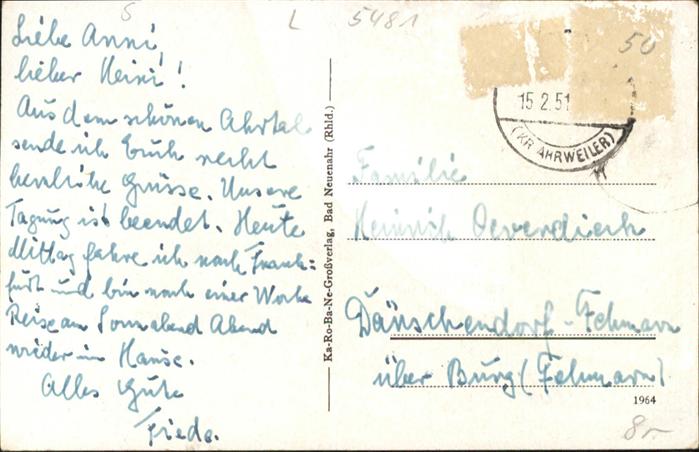 5
L
5481
50
Liebe Anni,
lieber Heini!
Aus dem schönen Ahrtal
sende ich Euch recht
herzliche Grüsse. Unsere
Tagung ist beendet. Heute
Mittag fahre ich nach Frank=
furt und bin nach einer Woche
Reise am Sonnabend Abend
wieder im Hause.
Alles Gute
Friedo.
Ka-Ro-Ba-Ne-Großverlag, Bad Neuenahr (Rhld.)
15.2.51
(KR AHRWEILER)
Familie
Heinrich Oeverdieck
Dänschendorf-Fehmarn
über Burg (Fehmarn)
1964
8,-